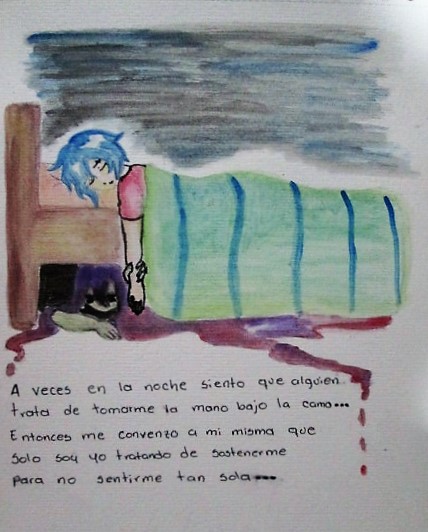 A veces en la noche siento que alguien..
trata de tomarme la mano bajo la cama...
Entonces me convenzo a mi misma que
solo soy yo tratando de sostenerme
para no sentirme tan sola....